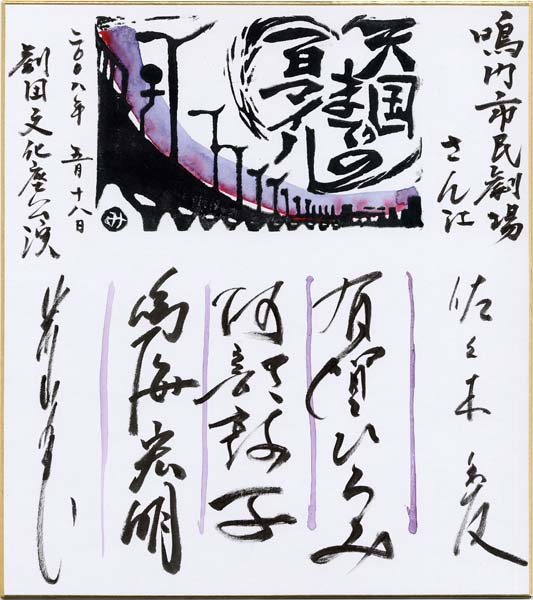 鳴門市民劇場
さん江
天国
までの
百マイル
み
二〇〇八年 五月十八日
劇団文化座公演
佐々木愛
有賀ひろみ
阿部敦子
鳴海宏明